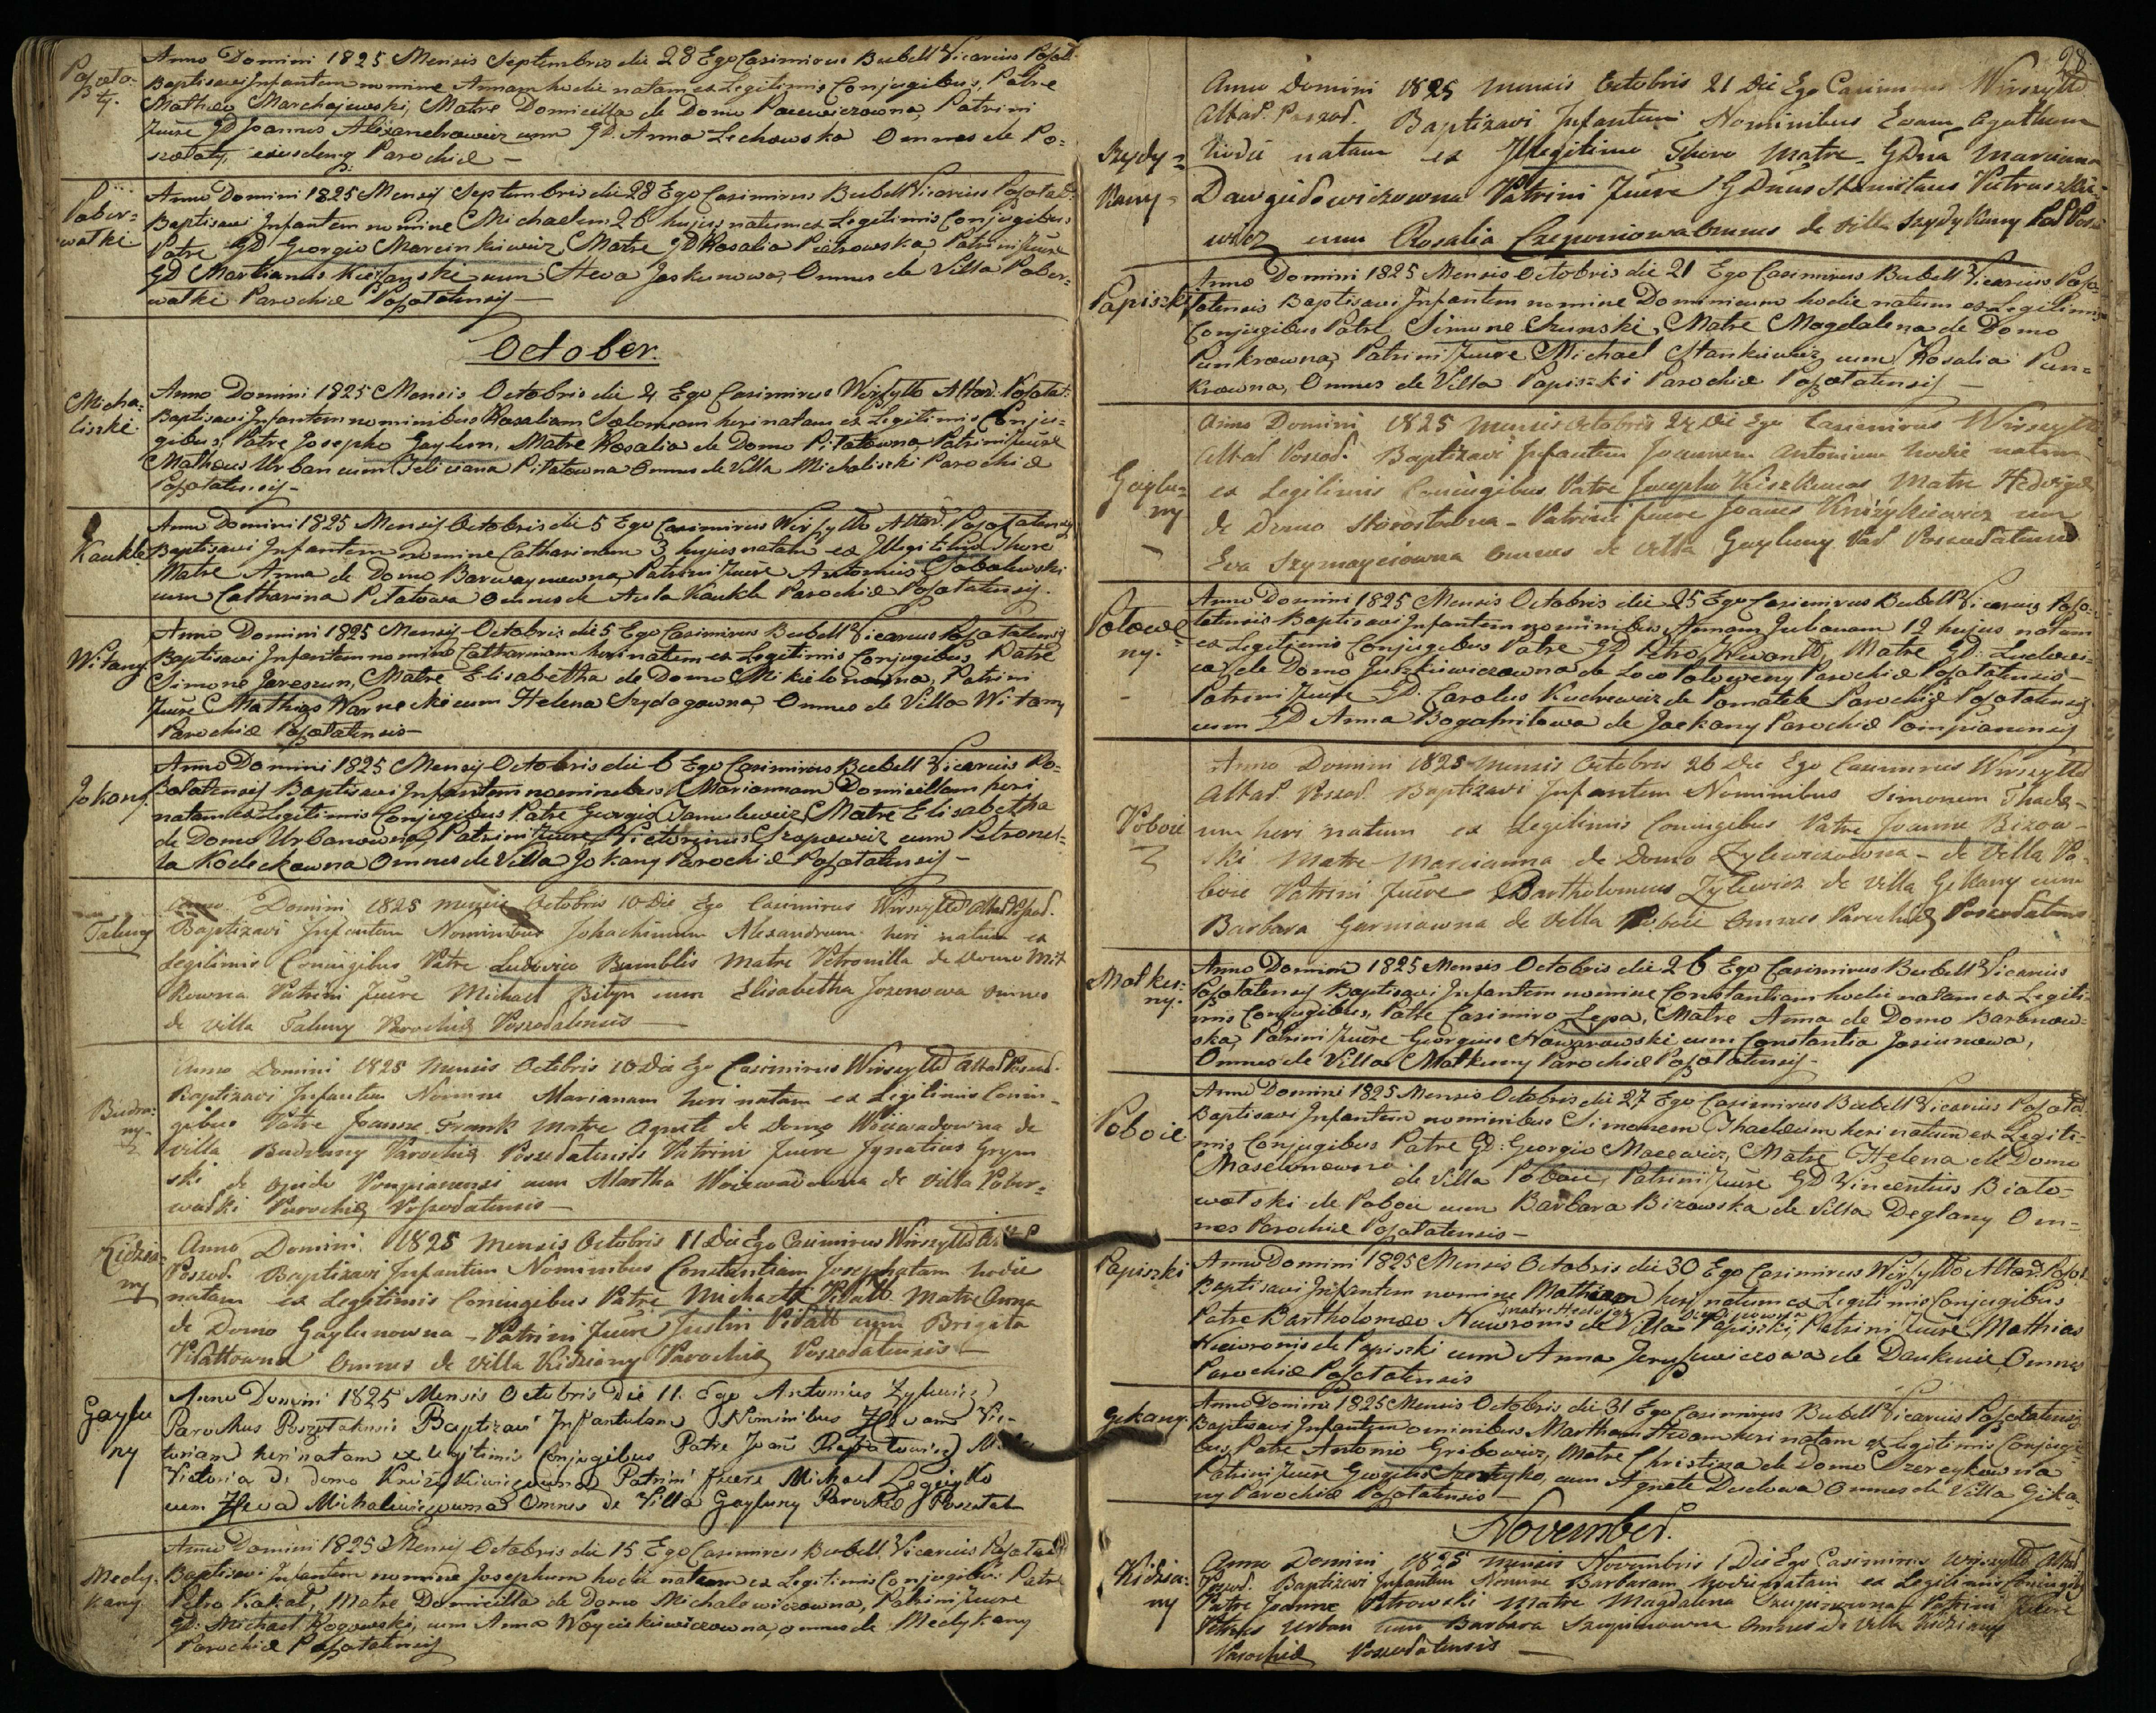 Poszoło-
ty.
Anno Domini 1825 Mensis Septembris die 28 Ego Casimirus Bubell Vicarius Poszoł:
Baptisavi Infantem nomine Annam hodie natam ex Legitimis Conjugibus, Patre
Matheo Marchajewski, Matre Domicilla de Domo Pacewiczowna, Patrini
fuere GD Joannes Alexandrowicz cum GD: Anna Lechowska Omnes de Po-
szołoty, ejusdemq Parochiæ —
Pober-
watki
Anno Domini 1825 Mensis Septembris die 28 Ego Casimirus Bubell Vicarius Poszołat:
Baptisavi Infantem nomine Michaelem 26 hujus natum ex Legitimis Conjugibus
Patre GD Georgio Marcinkiewicz, Matre GD Rosalia Piotrowska, Patrini fuere
GD Martianus cum Hewa Jaskunowa, Omnes de Villa Pober-
watki Parochiæ Poszołatensis —
October.
Micha-
liszki
Anno Domini 1825 Mensis Octobris die 4 Ego Casimirus Wirszyłło Altar: Poszołat:
Baptisavi Infantem nominibus Rosaliam Salomeam heri natam ex Legitimis Conju-
gibus, Patre Josepho Gaylun, Matre Rosalia de Domo Pitatowna, Patrini fuere
Matheus Urban cum Feliciana Pitatowna Omnes de Villa Michaliszki Parochiæ
Poszołatensis —
Kaukle
Anno Domini 1825 Mensis Octobris die 5 Ego Casimirus Wirszyłło Altar: Poszołatensis
Baptisavi Infantem nomine Catharinam 3 hujus natam ex Illegitimo Thoro
Matre Anna de Domo Barwaynowna, Patrini fuere Antonius Sobolewski
cum Catharina Pitatowa Omnes de Aula Kaukle Parochiæ Poszołatensis.
Witany
Anno Domini 1825 Mensis Octobris die 5 Ego Casimirus Bubell Vicarius Poszołatensis
Baptisavi Infantem nomine Catharinam heri natam ex Legitimis Conjugibus, Patre
Simone Jareszun, Matre Elisabetha de Domo Mikielonowna, Patrini
fuere Mathias Warnecki cum Helena Szydagowna, Omnes de Villa Witany
Parochiæ Poszołatensis —
Jokany
Anno Domini 1825 Mensis Octobris die 6 Ego Casimirus Bubell Vicarius Po-
szołatensis Baptisavi Infantem nominibus Mariannam Domicillam heri
natam ex Legitimis Conjugibus Patre Georgio Jamulewicz, Matre Elisabetha
de Domo Urbanowna, Patrini fuere Victorinus Szopowicz cum Petronel-
la Kodeckowna Omnes de Villa Jokany Parochiæ Poszołatensis —
Taluny
Anno Domini 1825 mensis Octobris 10 Die Ego Casimirus Wirszyłło Altar Poszoł.
Baptizavi Infantem Nominibus Johachimum Alexandrum heri natum ex
Legitimis Coniugibus Patre Ludovico Bumblis Matre Petronilla de Domo Mit
kowna Patrini fuere Michael Bityn cum Elisabetha Jozonowa omnes
de villa Taluny Parochiæ Poszodatensis —
Budru-
ny
Anno Domini 1825 Mensis Octobris 10 Die Ego Casimirus Wirszyłło Altar Poszod.
Baptizavi Infantem Nomine Marianam heri natam ex Legitimis Coniu-
gibus Patre Joanne Frank Matre Agneta de Domo Woiewadowna de
villa Budruny Parochiæ Poszodatensis Patrini fuere Ignatius Grym
ski de opido Pompianensi cum Martha Woiewadowna de villa Pober-
watki Parochiæ Poszodatensis —
Kidzia-
ny
Anno Domini 1825 Mensis Octobris 11 Die Ego Casimirus Wirszyłło
Poszod. Baptizavi Infantem Nominibus Constantiam Josephatam hodie
natam ex Legitimis Coniugibus Patre Michaele Pitatt Matre Anna
de Domo Gaylunowna – Patrini fuere Justin Pitatt cum Brigita
Pitattowna Omnes de villa Kidziany Parochiæ Poszodatensis —
Gaylu
ny
Anno Domini 1825 Mensis Octobris Die 11. Ego Antonius Zylewicz
Parochus Poszołatensis Baptizavi Infantulam Nominibus Hevam Vic-
toriam heri natam ex legitimis Conjugibus Patre Joan
Victoria de domo Patrini fuere Michael
cum Heva Michalewiczowna Omnes de Villa Gayluny Parochiæ Poszołat
Medy-
kany
Anno Domini 1825 Mensis Octobris die 15 Ego Casimirus Bubell Vicarius Poszołat
Baptisavi Infantem nomine Josephum hodie natum ex Legitimis Conjugibus Patre
Petro Kakat, Matre Domicilla de Domo Michalowiczowna, Patrini fuere
GD: Michael Rogowski, cum Anna Woyciekiewiczowna, omnes de Medykany
Parochiæ Poszołatensis
28.
Szydy-
kany
Anno Domini 1825 Mensis Octobris 21 Die Ego Casimirus Wirszyłło
Altar. Poszod. Baptizavi Infantem Nominibus Evam Agatham
hodie natam ex Illegitimo Thoro Matre GDna Marciana
Dawgidowiczowna Patrini fuere GDnus
wicz cum Rosalia omnes de Villa Szydykany
Papiszki
Anno Domini 1825 Mensis Octobris die 21 Ego Casimirus Bubell Vicarius Poszo-
łatensis Baptisavi Infantem nomine Dominicum hodie natum ex Legitimis
Conjugibus Patre Simone Szunski, Matre Magdalena de Domo
Punkrowna, Patrini fuere Michael Stankiewicz cum Rosalia Pun-
krowna, Omnes de Villa Papiszki Parochiæ Poszołatensis —
Gaylu-
ny
Anno Domini 1825 Mensis Octobris 24 Die Ego Casimirus Wirszyłło
Altar Poszod. Baptizavi Infantem Joannem Antonium hodie natum
ex Legitimis Coniugibus Patre Josepho Kiszkunas Matre Hedvige
de Domo Storostowna – Patrini fuere Joanes Kniżykiewicz cum
Eva Szymayciowna Omnes de villa Gayluny Par Poszodatensis
Potowe
ny.
Anno Domini 1825 Mensis Octobris die 25 Ego Casimirus Bubell Vicarius Poszo-
łatensis Baptisavi Infantem nominibus Annam Julianam 12 hujus natam
ex Legitimis Conjugibus Patre GD Petro Wizantt, Matre GD: Ludovi-
ca de Domo Juszkiewiczowna de Loco Potoweny Parochiæ Poszołatensis —
Patrini fuere GD: Carolus Kuchewicz de Pomatele Parochiæ Poszołatensis
cum GD Anna Bogasnitowa de Jackany Parochiæ Pompianensis
Poboie
Anno Domini 1825 Mensis Octobris 26 Die Ego Casimirus Wirszyłło
Altar Poszod. Baptizavi Infantem Nominibus Simonem Thade-
um heri natum ex Legitimis Coniugibus Patre Joanne Bizow-
ski Matre Marcianna de Domo Zylewiczowna – de Villa Po-
boie Patrini fuere Bartholomeus Zylewicz de villa Gekany cum
Barbara Germanowna de villa Poboie Omnes Parochiæ Poszodatensis
Matku-
ny.
Anno Domini 1825 Mensis Octobris die 26 Ego Casimirus Bubell Vicarius
Poszołatensis Baptisavi Infantem nomine Constantiam hodie natam ex Legiti-
mis Conjugibus, Patre Casimiro Lepa, Matre Anna de Domo Baranow-
ska, Patrini fuere Georgius Nowarowski cum Constantia Jasiunowa,
Omnes de Villa Matkuny Parochiæ Poszołatensis —
Poboie
Anno Domini 1825 Mensis Octobris die 27 Ego Casimirus Bubell Vicarius Poszołat
Baptisavi Infantem nominibus Simonem Thaddeum heri natum ex Legiti-
mis Conjugibus Patre GD: Georgio Macewicz, Matre Helena de Domo
Maselunowna de Villa Poboie, Patrini fuere GD Vincentius Biało-
watski de Poboie cum Barbara Bizowska de Villa Deglany Om-
nes Parochiæ Poszołatensis —
Papiszki
Anno Domini 1825 Mensis Octobris die 30 Ego Casimirus Wirszyłło Altar: Poszoł
Baptisavi Infantem nomine Mathiam heri natum ex Legitimis Conjugibus
matre Hedvige
Patre Bartholomæo Niewronis de Villa Papiszki, Patrini fuere Mathias
Niewronis de Papiszki cum Anna Jeruszewiczowa de Daukucie, Omnes
Parochiæ Poszołatensis
Gekany.
Anno Domini 1825 Mensis Octobris die 31 Ego Casimirus Bubell Vicarius Poszołatensis
Baptisavi Infantem nominibus Martham Hevam heri natam ex Legitimis Conjugi-
bus, Patre Antonio Gribowicz, Matre Christina de Domo Szereykowna
Patrini fuere Georgius cum Agneta Dudowa Omnes de Villa Gika
ny Parochiæ Poszołatensis —
November.
Kidzia-
ny
Anno Domini 1825 mensis Novembris 1 Die Ego Casimirus Wirszyłło Altar
Poszod. Baptizavi Infantem Nomine Barbaram hodie natam ex Legitimis Coniugibus
Patre Joanne Petrowski Matre Magdalena Patrini fuere
Petrus Urban cum Barbara Szugunowna Omnes de Villa Kidziany
Parochiæ Poszodatensis —